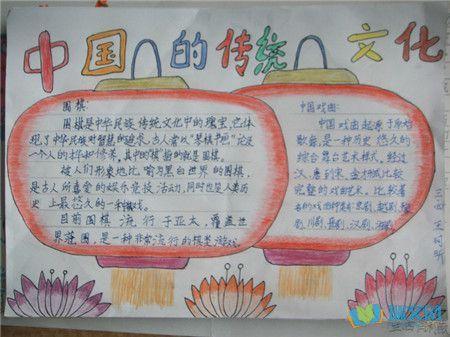 中国的传统文化
围棋:
围棋是中华民族传统文化中的瑰宝,它体
现了中华民族对智慧的追求,古人常以“琴棋书画”论及
一个人的才华和修养,其中的“棋”指的就是围棋。
被人们形象地比喻为黑白世界的围棋,
是古人所喜爱的娱乐竞技活动,同时也是人类历
史上最悠久的一种棋戏
目前围棋流行于亚太,覆盖世
界范围,是一种非常流行的棋类游戏
中国戏曲:
中国戏曲起源于原始
歌舞,是一种历史悠久的
综合舞台艺术样式,经过
汉、唐到宋、金才形成比较
完整的戏曲艺术,比较著
名的戏曲种类有:京剧、越剧、
川剧、
三